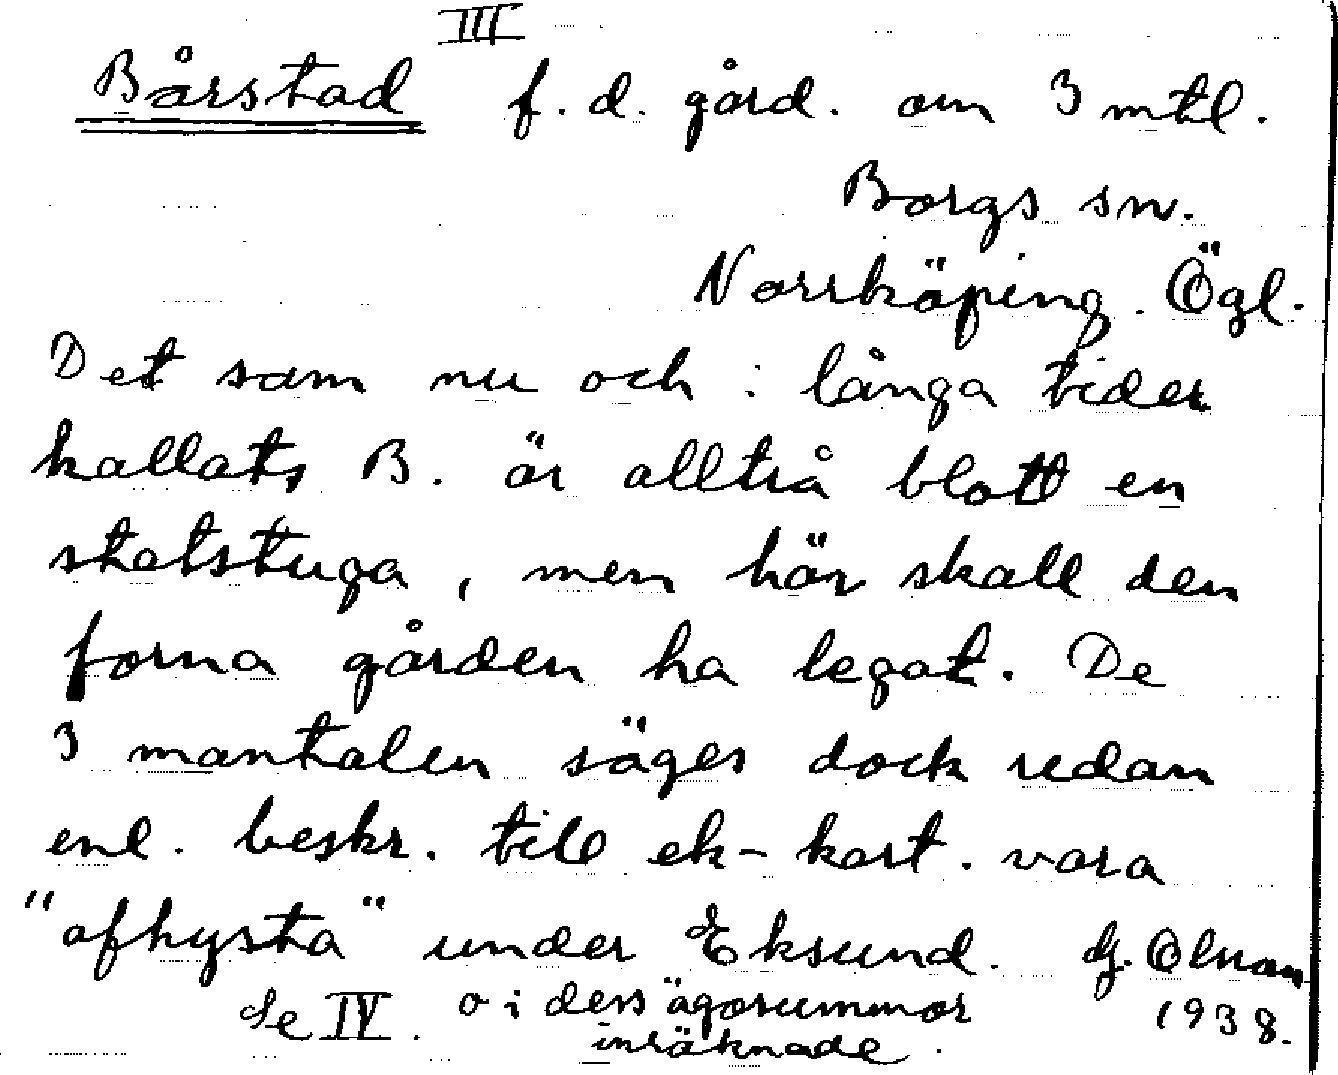 III
Bårstad f. d. gård. om 3 mtl.
Borgs sn.
Norrköping. Ögl.
Det som nu och i långa tider
kallats B. är alltså blott en
statstuga, men här skall den
forna gården ha legat. De
3 mantalen säges dock redan
enl. beskr. till ek-kart. vara
"afhysta" under Eksund. G. Olsson
Se IV. o i dess ägosummor 1938.
inräknade.